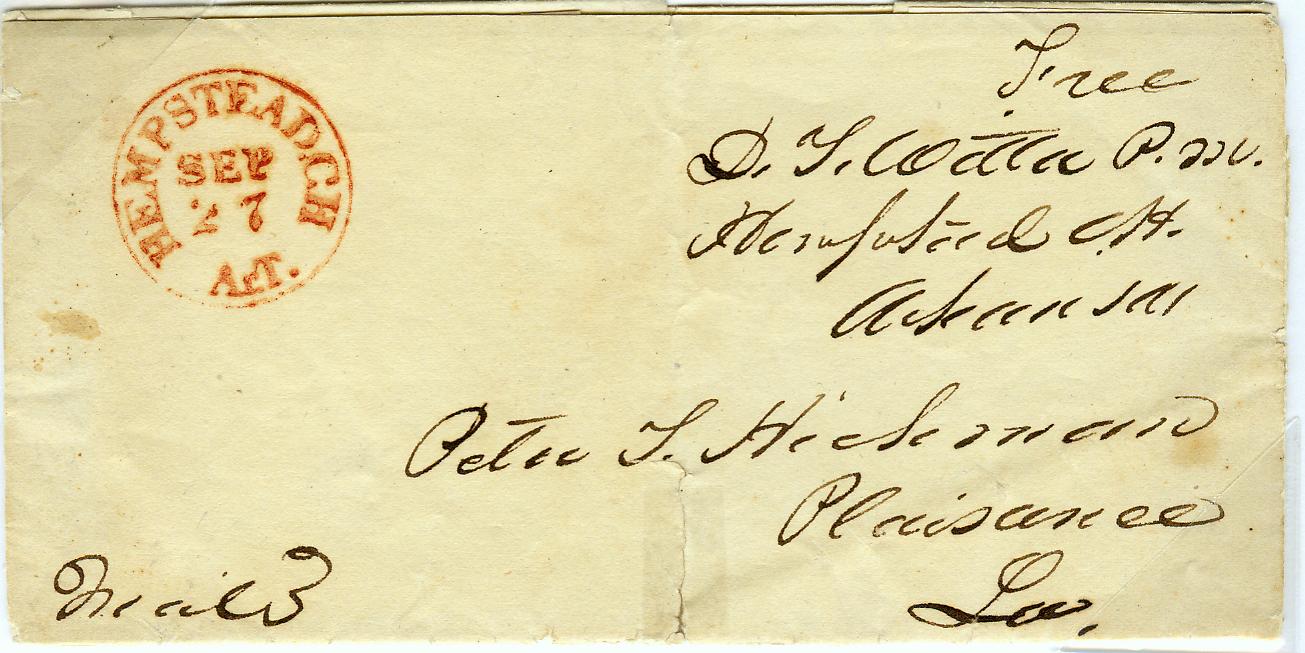 HEMPSTEAD C.H
SEP
27
ArT.
Free
D. T. Witter P.M.
Hempstead C.H.
Arkansas
Peter T. Hickman
Plaisance
La.
Mail 3